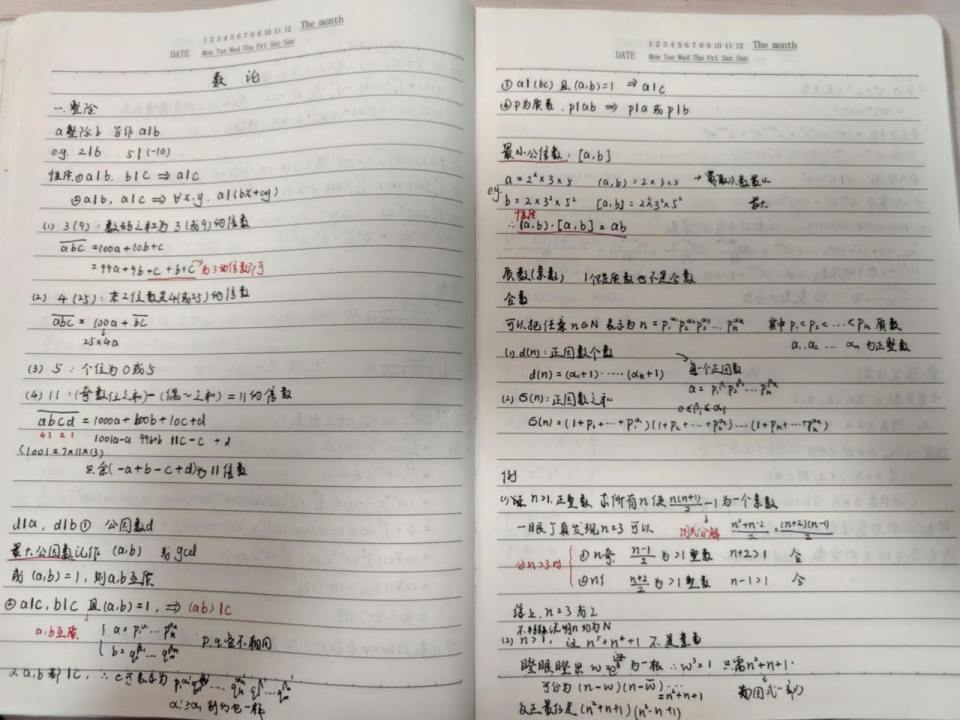 1 2 3 4 5 6 7 8 9 10 11 12 The month
DATE Mon Tue Wed Thu Fri Sat Sun
数 论
一. 整除
a整除b 写作 a|b
e.g. 2|6 5|(-10)
性质①a|b. b|c ⇒ a|c
②a|b, a|c ⇒ ∀x.y. a|(bx+cy)
(1) 3(9): 数码之和为3(或9)的倍数
abc = 100a+10b+c
= 99a+9b+c+b+c 为3的倍数即可
(2) 4(25): 末2位数是4(或25)的倍数
abc = 100a + bc
25×4a
(3) 5: 个位为0或5
(4) 11: (奇数位之和)-(偶~之和) = 11的倍数
abcd = 1000a+100b+10c+d
4 3 2 1 1001a-a 99b+b 11c-c + d
(1001=7×11×13)
只余(-a+b-c+d)为11倍数
d|a, d|b① 公因数d
最大公因数记作 (a,b) 或 gcd
或 (a,b)=1, 则a,b互质
②a|c, b|c 且(a,b)=1, ⇒ (ab)|c
a,b互质 { a = p₁^α₁ … pₙ^αₙ
b = q₁^β₁ … qₘ^βₘ p.q定不相同
又a,b都|c, ∴ c可表示为
1 2 3 4 5 6 7 8 9 10 11 12 The month
DATE Mon Tue Wed Thu Fri Sat Sun
③ a|(bc) 且 (a,b)=1 ⇒ a|c
④ p为质数, p|ab ⇒ p|a 或 p|b
最小公倍数: [a,b]
e.g. a = 2²×3×5 (a,b) = 2×3×5 → 幂取次数最小
b = 2×3²×5² [a,b] = 2²×3²×5² 最大
性质
∴ (a,b)·[a,b] = ab
质数(素数) 1个非质数也不是合数
合数
可以把任意n∈N 表示为 n = p₁^α₁p₂^α₂p₃^α₃… pₙ^αₙ 其中 p₁<p₂<…<pₙ 质数
α₁.α₂ … αₙ 为正整数
(1) d(n): 正因数个数
d(n) = (α₁+1)……(αₙ+1) 每一个正因数
a = p₁^β₁p₂^β₂…pₙ^βₙ
(2) σ(n): 正因数之和 0≤β₁≤α₁
σ(n) = (1+p₁+…+p₁^α₁)(1+p₂+…+p₂^α₂)…(1+pₙ+…pₙ^αₙ)
例
(1) n>1. 正整数 求所有n使 n(n+1)/2 - 1 为一个素数
一眼丁真发现 n=3 可以 因式分解 (n²+n-2)/2 = (n+2)(n-1)/2
②n>3时 { ①n奇 (n-1)/2 为>1整数 n+2>1 合
②n偶 (n+2)/2 为>1整数 n-1>1 合
综上, n=3为2
不特殊说明n均为N
(2) n>1, 证 n⁵+n⁴+1 不是素数
瞪眼瞪出 w 为一根 ∴w³=1 只需n²+n+1.
可分为 (n-w)(n-w̄) = n²+n+1 为因式一部分
反正最后是 (n²+n+1)(n³-n+1)